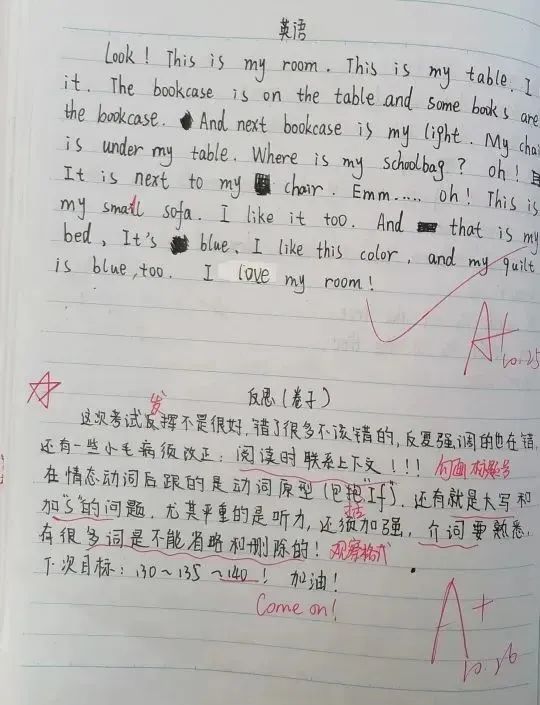 英语
Look! This is my room. This is my table. I
it. The bookcase is on the table and some books are
the bookcase. And next bookcase is my light. My chai
is under my table. Where is my schoolbag? oh!
It is next to my chair. Emm..... oh! This is
my small sofa. I like it too. And that is my
bed, It's blue. I like this color, and my quilt
is blue, too. I love my room!
A+
10.25
反思(卷子)
发
这次考试反挥不是很好,错了很多不该错的,反复强调的也在错,
还有一些小毛病须改正:阅读时联系上下文!!!
在情态动词后跟的是动词原型(包抱"If").还有就是大写和
括
加"s"的问题.尤其严重的是听力,还须加强,介词要熟悉,
有很多词是不能省略和删除的!观察格式
下次目标:130~135~140!加油!
Come on!
A+
10.26